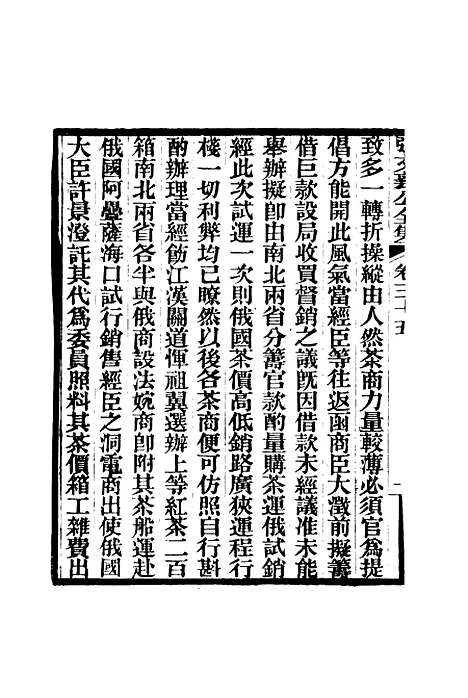 張文襄公全集 卷三十五 一
致多一轉折操縱由人然茶商力量較薄必須官爲提
倡方能開此風氣當經臣等往返函商臣大澂前擬籌
借巨款設局收買督銷之議旣因借款未經議准未能
舉辦擬卽由南北兩省分籌官款酌量購茶運俄試銷
經此次試運一次則俄國茶價高低銷路廣狹運程行
棧一切利弊均已瞭然以後各茶商便可仿照自行斟
酌辦理當經飭江漢關道惲祖翼選辦上等紅茶二百
箱南北兩省各半與俄商設法婉商卽附其茶船運赴
俄國阿疊薩海口試行銷售經臣之洞電商出使俄國
大臣許景澄託其代爲委員照料其茶價箱工雜費出